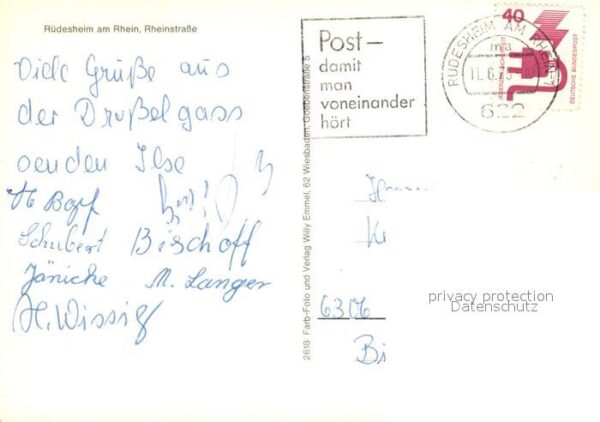 Rüdesheim am Rhein, Rheinstraße
Viele Grüße aus
der Draßelgass
senden Ilse
Bopf
Schubert Bischoff
Jänicke M. Langer
H. Wissig
2618 Farb-Foto und Verlag Willy Emmel, 62 Wiesbaden,
Post—
damit
man
voneinander
hört
RÜDESHEIM AM RHEIN 1
ma
11.6.
622
40
DEUTSCHE BUNDESPOST
Ke
privacy protection
Datenschutz
Bi